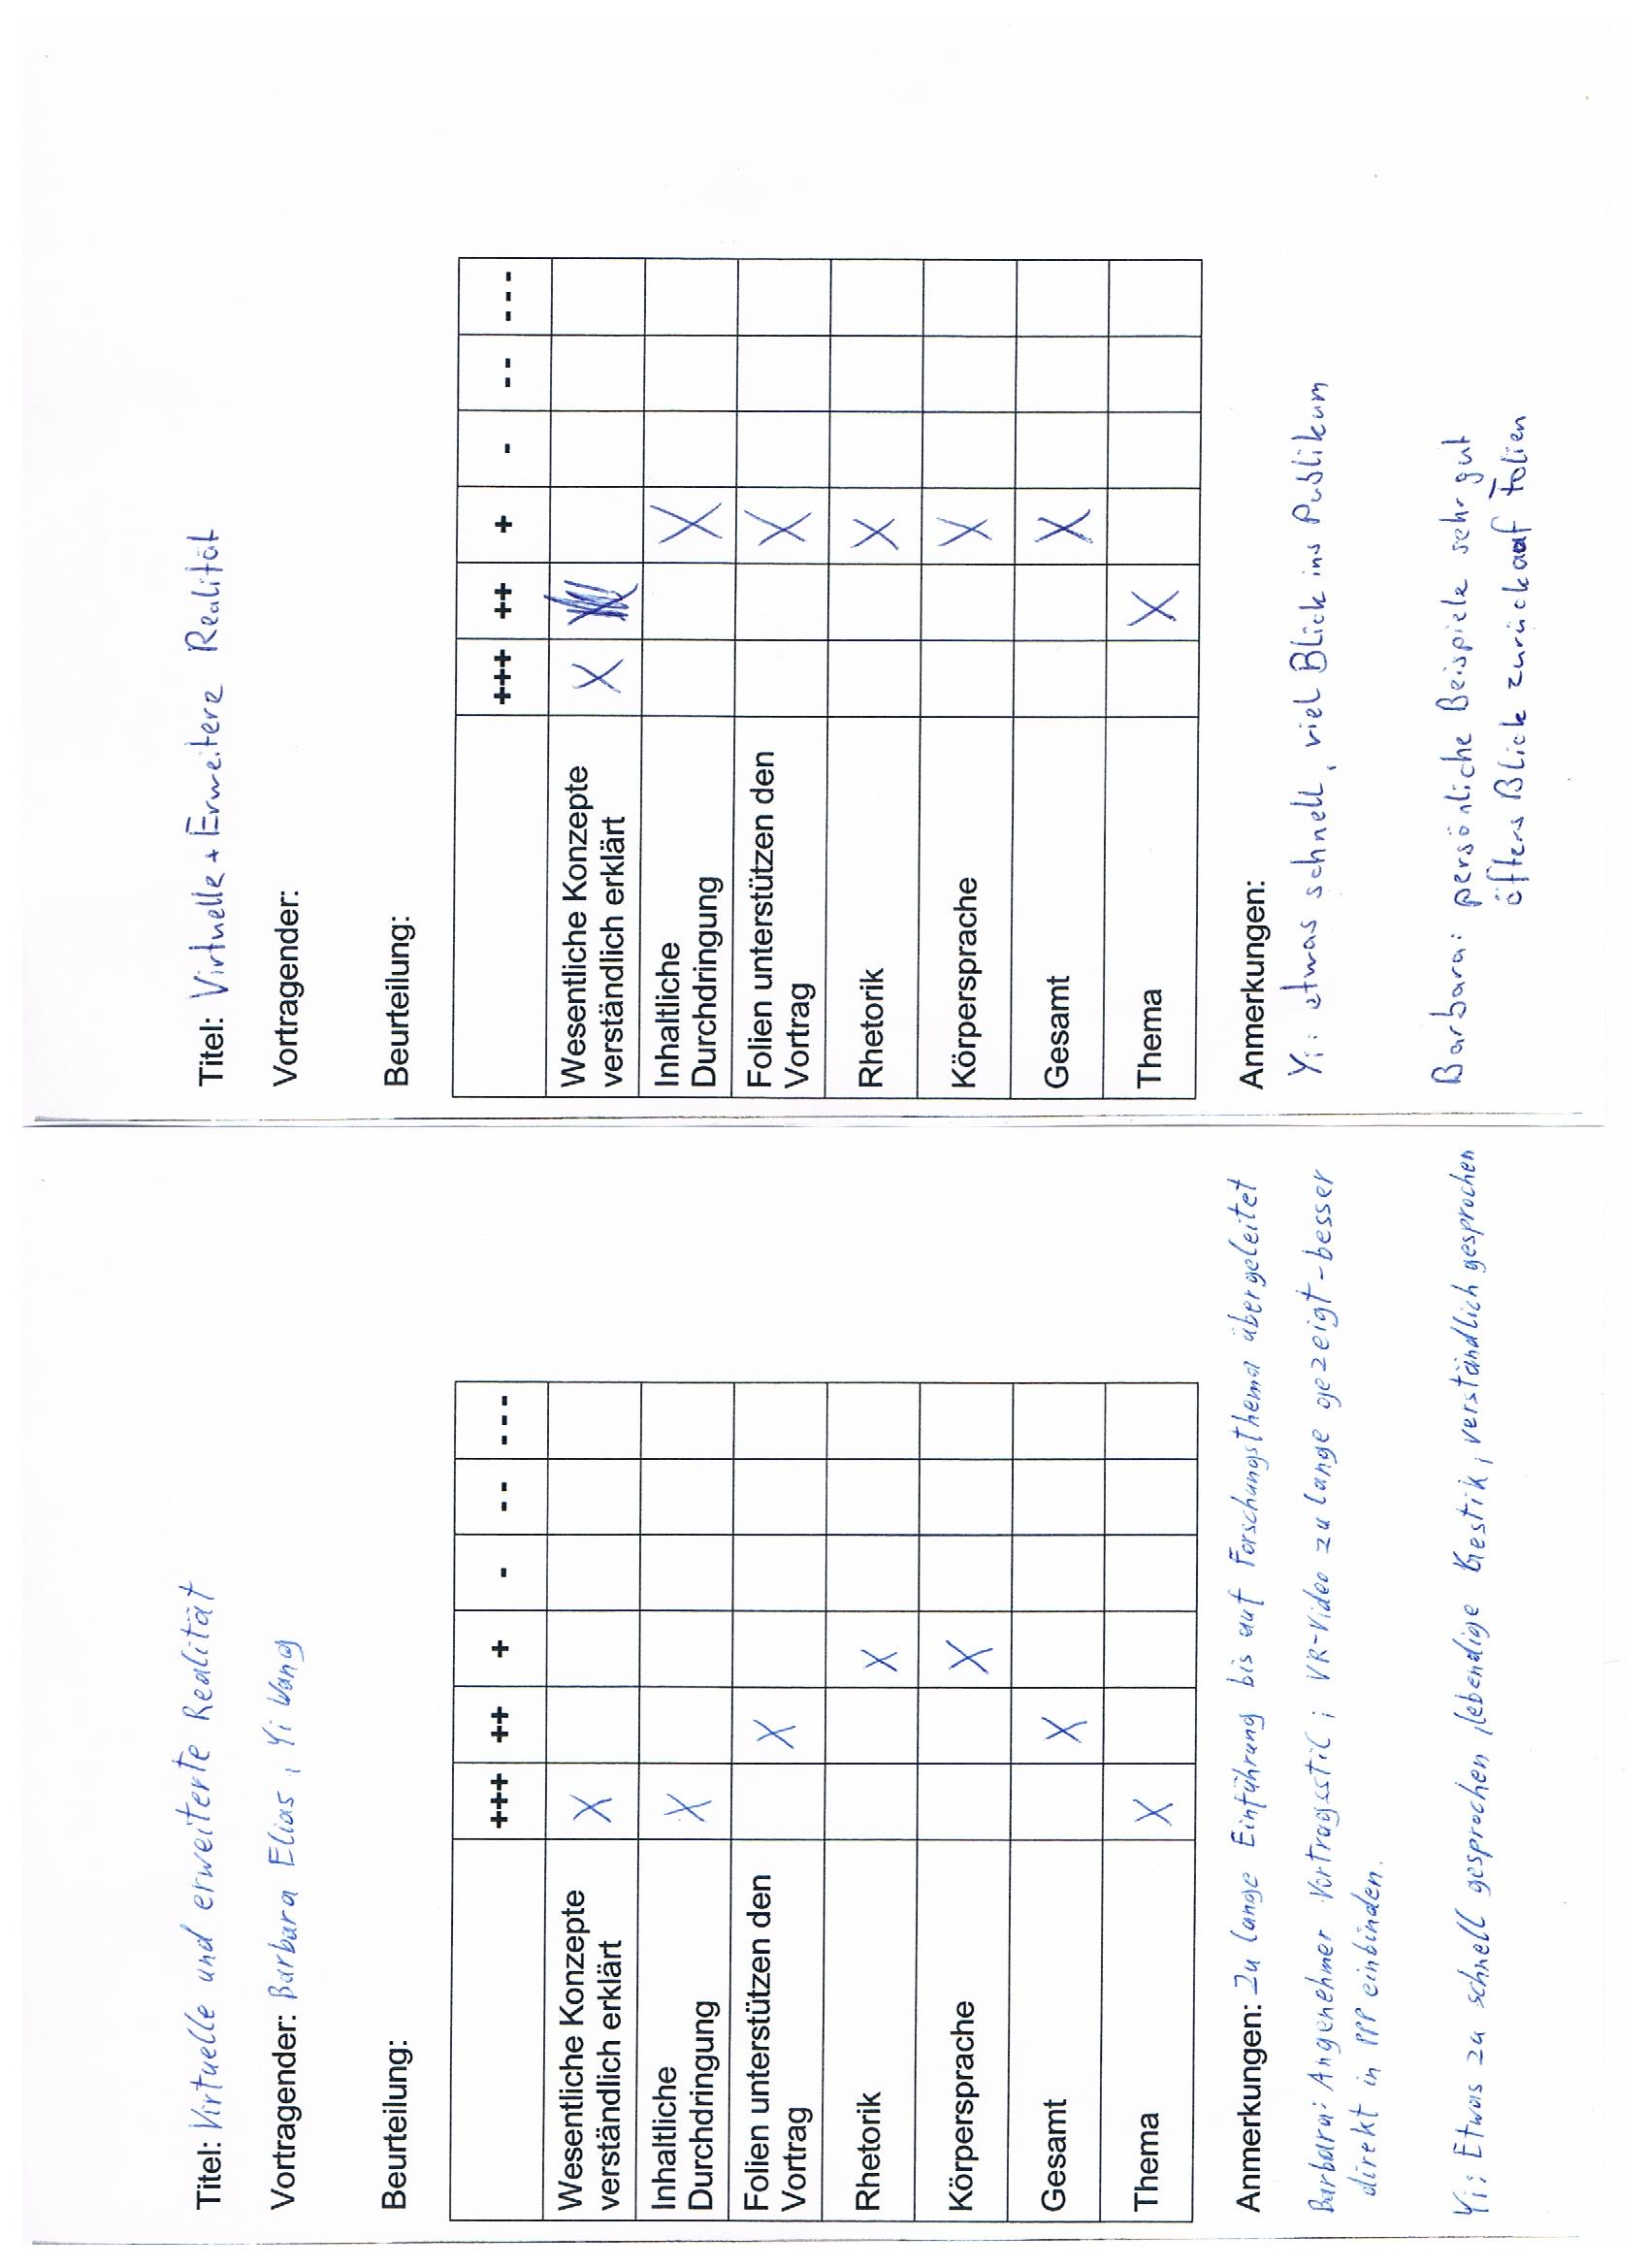 Titel: Virtuelle und erweiterte Realität
Vortragender: Barbara Elias, Yi Wang
Beurteilung:
+++ ++ + - -- ---
Wesentliche Konzepte
verständlich erklärt X
Inhaltliche
Durchdringung X
Folien unterstützen den
Vortrag X
Rhetorik X
Körpersprache X
Gesamt X
Thema X
Anmerkungen: Zu lange Einführung bis auf Forschungsthema übergeleitet
Barbara: Angenehmer Vortragsstil; VR-Video zu lange gezeigt - besser
direkt in PPP einbinden.
Yi: Etwas zu schnell gesprochen, lebendige Gestik, verständlich gesprochen
Titel: Virtuelle + Erweitere Realität
Vortragender:
Beurteilung:
+++ ++ + - -- ---
Wesentliche Konzepte
verständlich erklärt X
Inhaltliche
Durchdringung X
Folien unterstützen den
Vortrag X
Rhetorik X
Körpersprache X
Gesamt X
Thema X
Anmerkungen:
Yi: etwas schnell, viel Blick ins Publikum
Barbara: persönliche Beispiele sehr gut
öfters Blick zurück auf Folien